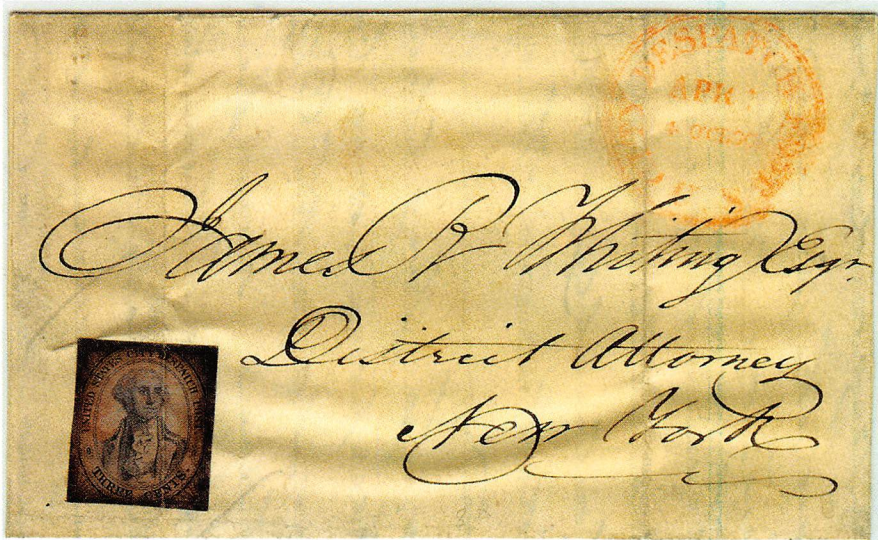 CITY DESPATCH POST
APR
4 OCLO
James R Whiting Esqr
District Attorney
New York
UNITED STATES CITY DESPATCH POST
THREE CENTS.